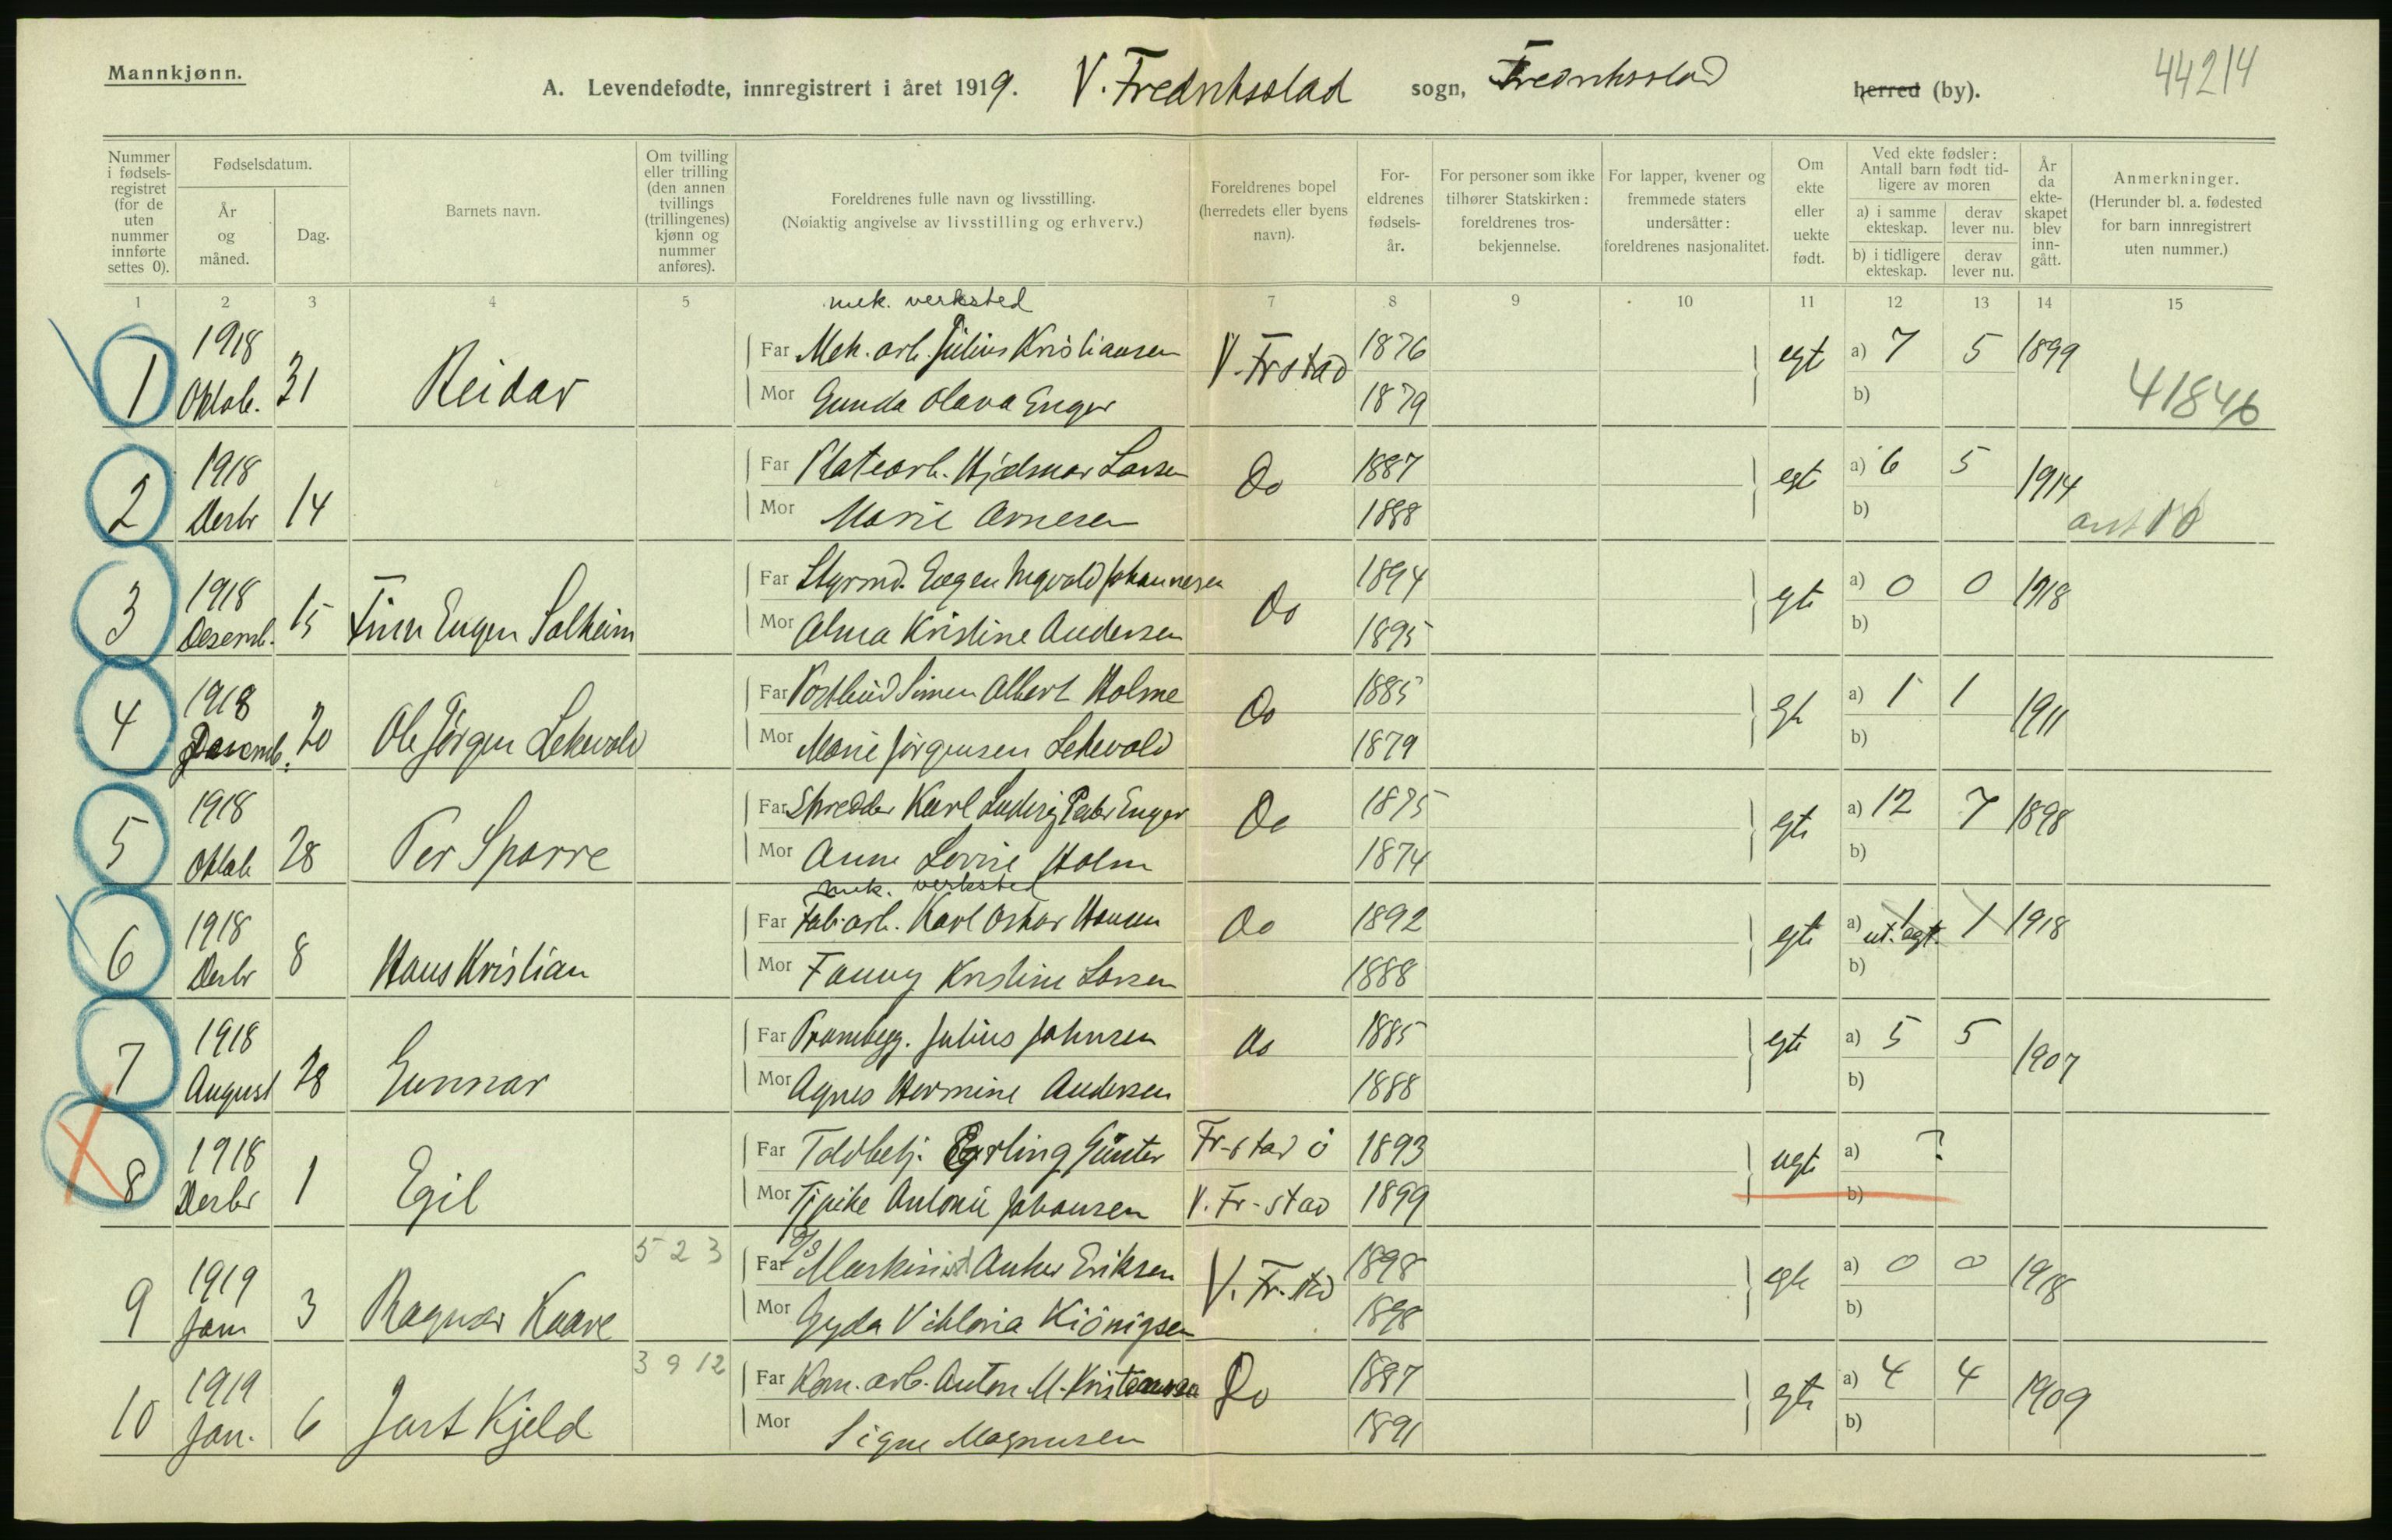 Mannkjønn.
A. Levendefødte, innregistrert i året 1919. V. Fredrikstad sogn, Fredrikstad herred (by).
44214
Nummer i fødselsregistret (for de uten nummer innførte settes 0).
Fødselsdatum.
År og måned.
Dag.
Barnets navn.
Om tvilling eller trilling (den annen tvillings (trillingenes) kjønn og nummer anføres).
Foreldrenes fulle navn og livsstilling.
(Nøiaktig angivelse av livsstilling og erhverv.)
Foreldrenes bopel (herredets eller byens navn).
Foreldrenes fødselsår.
For personer som ikke tilhører Statskirken: foreldrenes trosbekjennelse.
For lapper, kvener og fremmede staters undersåtter: foreldrenes nasjonalitet.
Om ekte eller uekte født.
Ved ekte fødsler: Antall barn født tidligere av moren
a) i samme ekteskap.
derav lever nu.
b) i tidligere ekteskap.
derav lever nu.
År da ekteskapet blev inngått.
Anmerkninger.
(Herunder bl. a. fødested for barn innregistrert uten nummer.)
1 2 3 4 5 7 8 9 10 11 12 13 14 15
mek. verksted
1 1918 Oktob. 31 Reidar
Far Mek. arb. Julius Kristiansen V. Frstad 1876 egt a) 7 5 1899
Mor Gunda Olava Enger 1879 b) 41846
2 1918 Desbr 14
Far Platearb. Hjalmar Larsen Do 1887 egt a) 6 5 1914
Mor Marie Arnesen 1888 b)
3 1918 Desemb. 15 Finn Eugen Solheim
Far Styrmd. Eugen Ingvald Johannesen Do 1894 egt a) 0 0 1918
Mor Alma Kristine Andersen 1895 b)
4 1918 Desemb. 20 Ole Jørgen Lekevold
Far Postbud Simen Albert Holme Do 1885 egt a) 1 1 1911
Mor Marie Jørgensen Lekevold 1879 b)
5 1918 Oktob 28 Per Sparre
Far Skredder Karl Ludvig Peder Enger Do 1875 egt a) 12 7 1898
Mor Anne Lovise Holm 1874 b)
mek. verksted
6 1918 Desbr 8 Hans Kristian
Far Fab. arb. Karl Oskar Hansen Do 1892 egt a) 1 ut. egt. 1 1918
Mor Fanny Kristine Larsen 1888 b)
7 1918 August 28 Gunnar
Far Prambygg. Julius Johnsen do 1885 egt a) 5 5 1907
Mor Agnes Hermine Andersen 1888 b)
8 1918 Desbr 1 Egil
Far Toldbetj. Erling Günter Fr-stad ö 1893 ugt a) ?
Mor Antonie Johansen V. Fr-stad 1899 b)
9 1919 Jan 3 Ragnar Kaare 5 2 3
Far D/S Maskinist Anker Eriksen V. Fr. std 1898 egt a) 0 0 1918
Mor Gyda Viktoria Kiönigsen 1898 b)
10 1919 Jan. 6 Jart Kjeld 3 9 12
Far Kom. arb. Anton M. Kristensen Do 1887 egt a) 4 4 1909
Mor Signe Magnusen 1891 b)